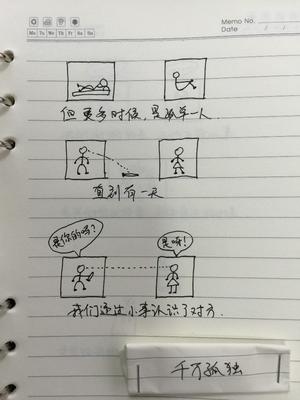 Memo No.
Date / /
Mo Tu We Th Fr Sa Su
但更多时候，是孤单一人.
直到有一天
是你的吗？ 是呀！
我们通过小事认识了对方.
千万孤独